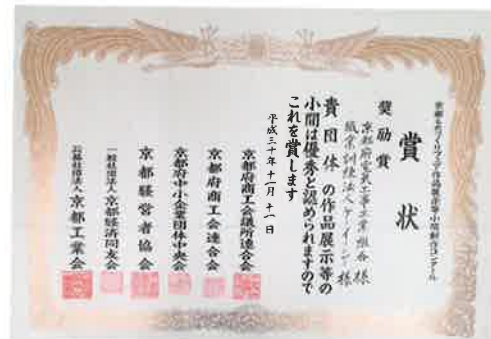 賞状
奨励賞
京都府電気工事工業組合 様
職業訓練法人ケイデン 様
貴団体の作品展示等の
小間は優秀と認められますので
これを賞します
平成三十年十一月十一日
京都府商工会議所連合会
京都府商工会連合会
京都府中小企業団体中央会
京都経営者協会
一般社団法人 京都経済同友会
公益社団法人 京都工業会